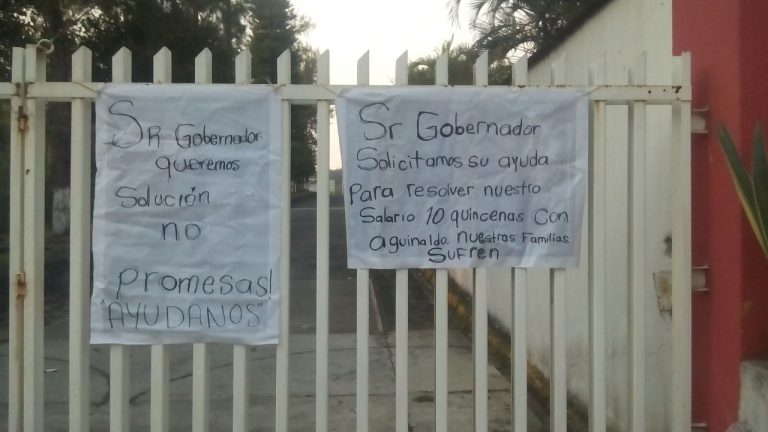 SR Gobernador
queremos
Solución
no
promesas!
"AYUDANOS"
Sr Gobernador
Solicitamos su ayuda
Para resolver nuestro
Salario 10 quincenas Con
aguinaldo. nuestras Familias
SUFREN